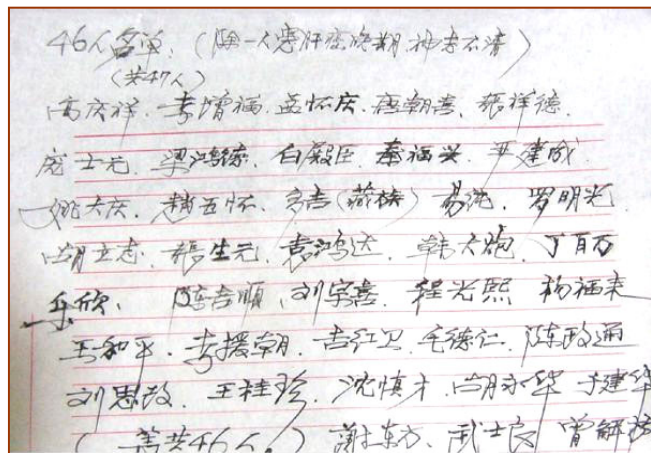 46人名单:(除一人患肝癌晚期,神志不清)
(共47人)
高庆祥、李增福、孟怀庆、唐朝喜、张祥德、
庞士元、梁鸿绪、白殿臣、秦福兴、平建成、
姚天庆、赵五怀、多吉(藏族)易纯、罗明光
胡立志、张生元、袁鸿达、韩大炮、丁百万
乐欣、陈吉顺、刘宗喜、程光熙、杨福来
王和平、李援朝、吉红卫、毛德仁、陈政通
刘思故、王桂珍、沈慎才、胡永华、于建华
(共46人。)谢东方、武士良、曾解放